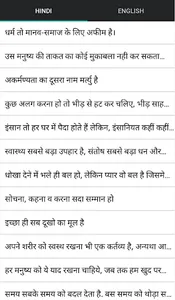 HINDI
ENGLISH
धर्म तो मानव-समाज के लिए अफीम है।
उस मनुष्य की ताकत का कोई मुकाबला नही कर सकता...
अकर्मण्यता का दूसरा नाम मर्त्यु है
कुछ अलग करना हो तो भीड़ से हट कर चलिए, भीड़ साह...
इंसान तो हर घर में पैदा होते हैं लेकिन, इंसानियत कहीं कहीं...
स्वास्थ्य सबसे बड़ा उपहार है, संतोष सबसे बड़ा धन और...
धोखा देने में भले ही बल हो, लेकिन प्यार वो बल है जिसमे...
सोचना, कहना व करना सदा सम्मान हो
इच्छा ही सब दुखो का मूल है
अपने शरीर को स्वस्थ रखना भी एक कर्तव्य है, अन्यथा आ...
हर मनुष्य को ये याद रखना चाहिये, जब तक हम खुद पर...
समय सबके समय को बदल देता है. बस समय को थोड़ा स...